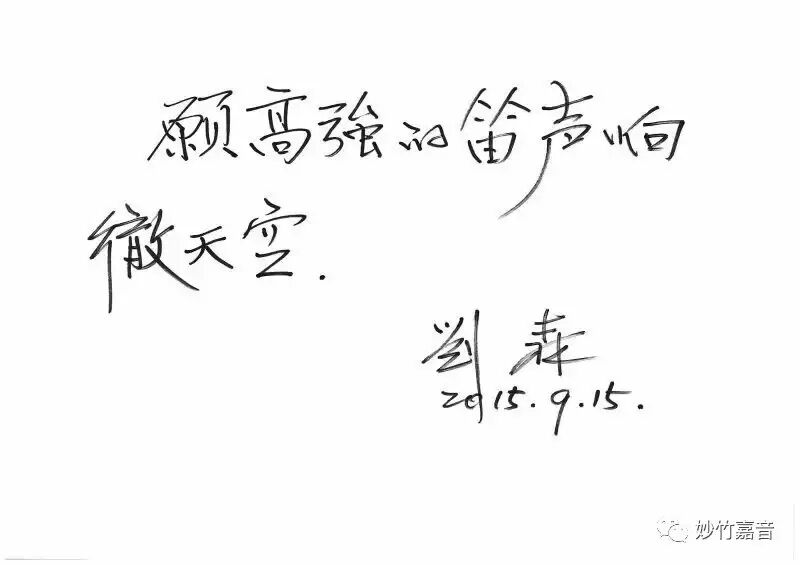 願高強的笛声响
徹天空.
劉森
2015.9.15.
妙竹嘉音